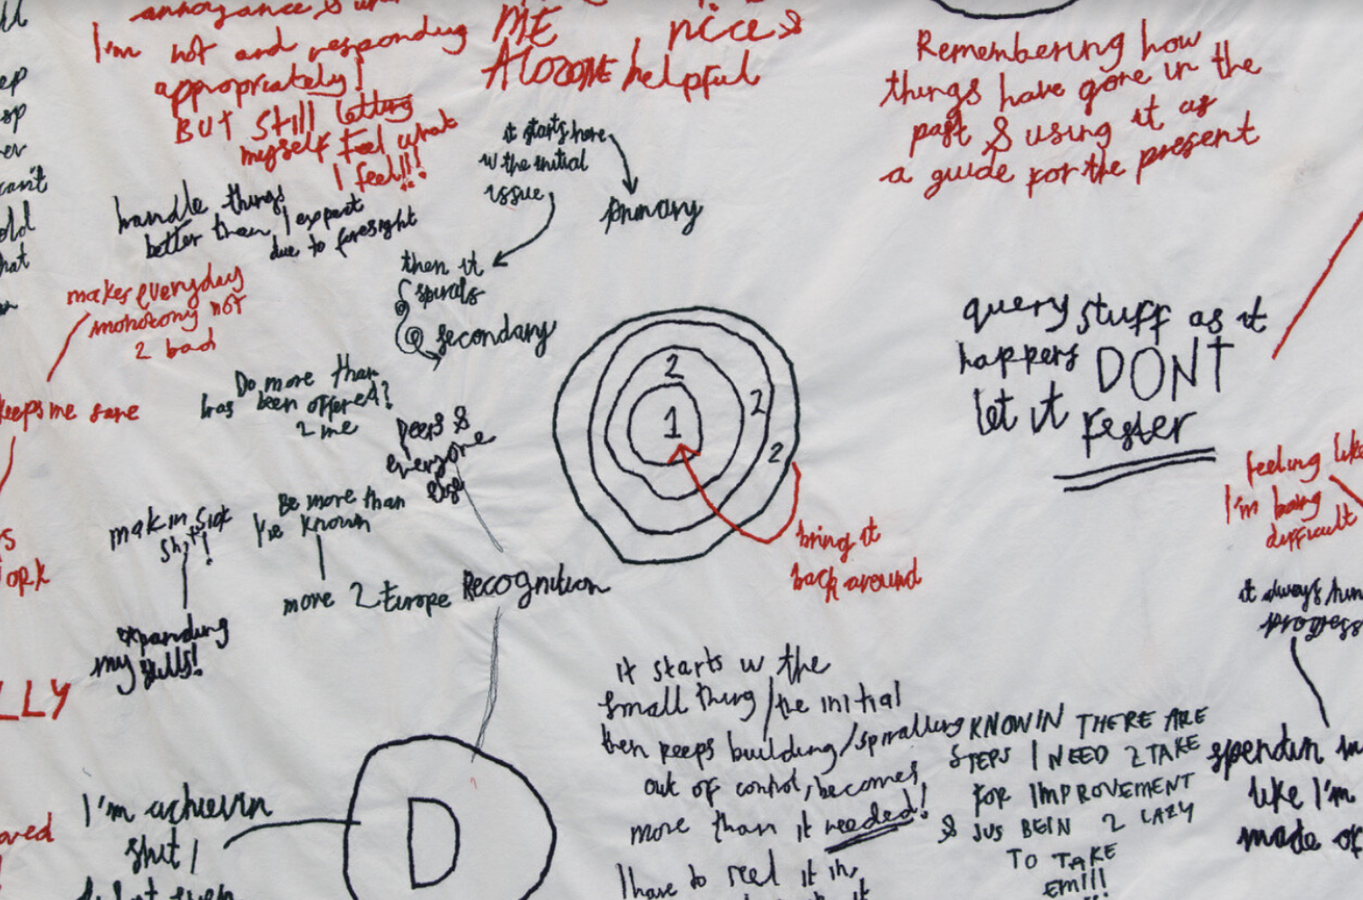 annoyance &
I'm not and responding
appropriately!
BUT still letting
myself feel what
I feel!!!
ME nice &
Alooone helpful
Remembering how
things have gone in the
past & using it as
a guide for the present
it starts here
w the initial
issue
primary
then it
spirals
secondary
handle things
better than I expect
due to foresight
makes everyday
monotony not
2 bad
keeps me sane
Do more than
has been offered?
2 me
peers &
everyone
else
Be more than
I've known
more 2 Europe
Recognition
makin sick
shit!
expanding
my skills!
2
1
2
2
bring it
back around
query stuff as it
happens DONT
let it
fester
feeling like
I'm being
difficult
it always
progress
spendin
like I'm
made of
it starts w the
small thing/the initial
then keeps building/spiralling
out of control, becomes
more than it needed!
I have to reel it in,
KNOWIN THERE ARE
STEPS I NEED 2 TAKE
FOR IMPROVEMENT
& JUS BEIN 2 LAZY
TO TAKE
EM!!!
I'm achievin
shit!
D
LLY
ep
sp
er
can't
old
hat
ork
oved